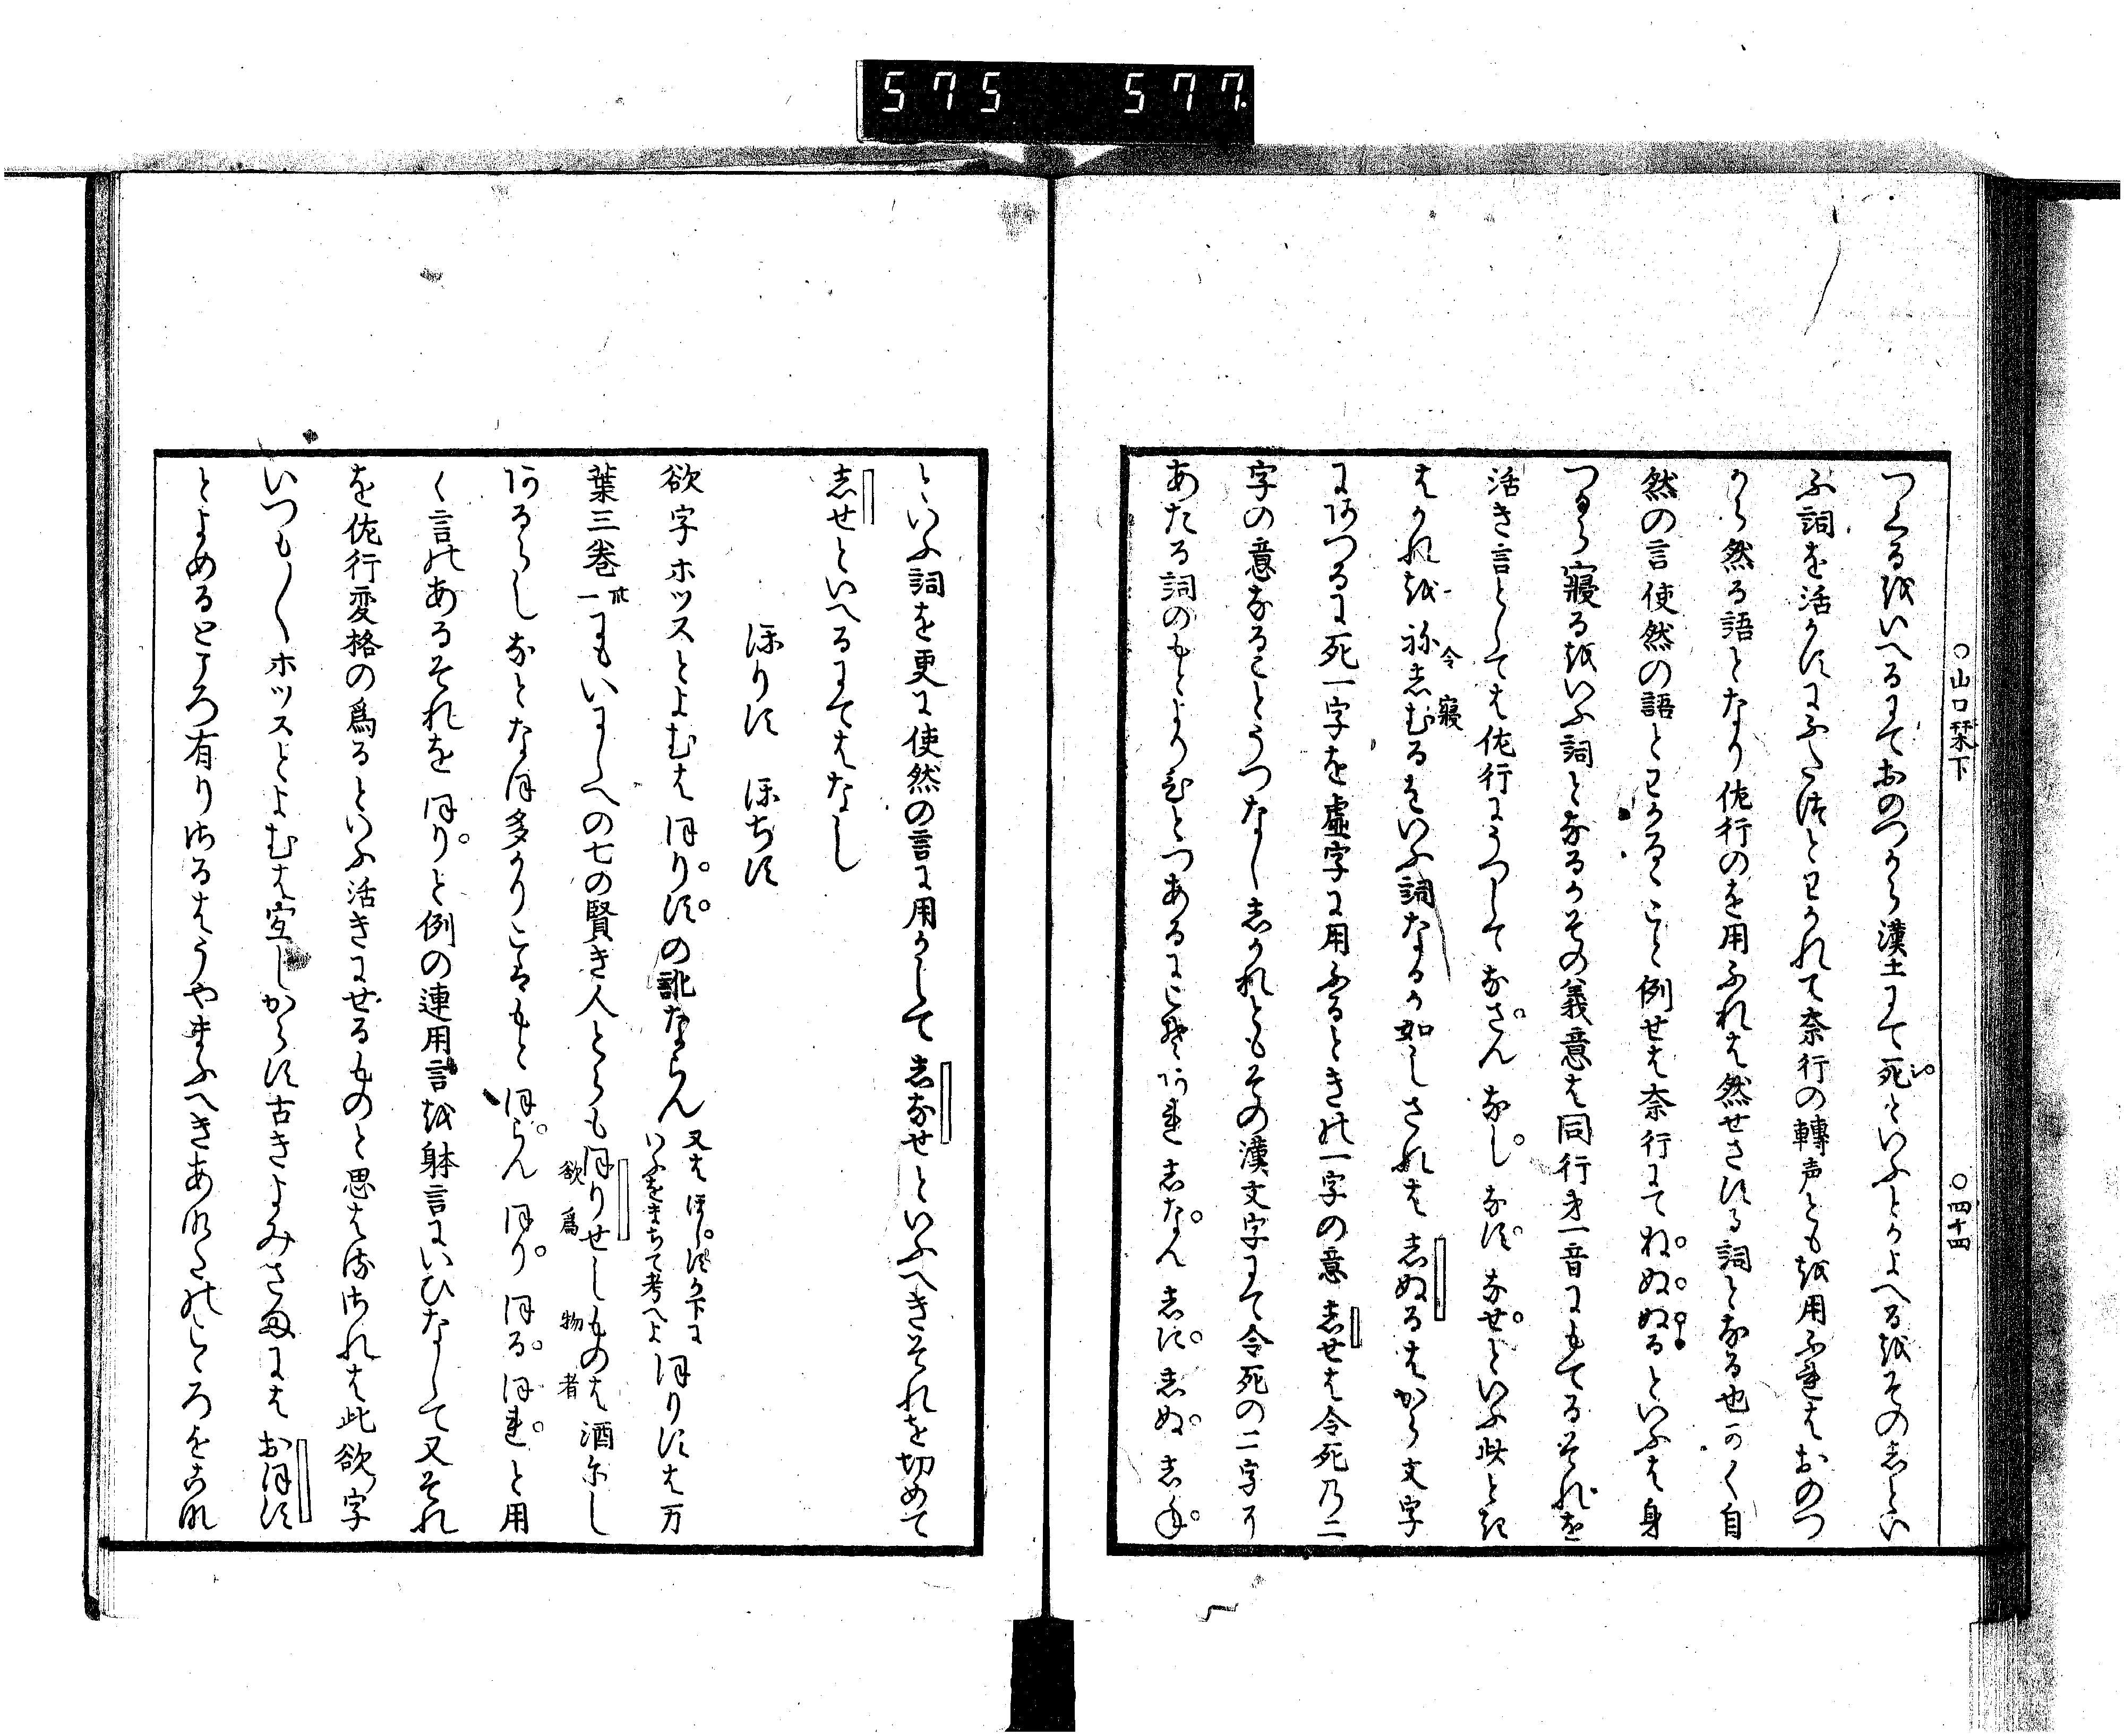 575 577
○山口栞下 ○四十四
つくるをいへるにておのつから漢土にて死といふとかよへるをその志とい
ふ詞を活かすにふたつとわかれて奈行の轉声とも を用ふれはおのつ
から然る語となり佐行のを用ふれは然せさする詞となる也かく自
然の言使然の語とわかるゝこと例せは奈行にてね ぬ ぬるといふは身
つから寢るをいふ詞となるかその義意は同行第一音にもてるそれを
活き言としては佐行にうつして なさん なし なす なせ といふ此とき
はかれを祢志むるをいふ詞なるか如しされは志ぬるはから文字
令 寢
にあつるに死一字を虚字に用ふるときの一字の意志せは令死乃二
字の意なることうつなし志かれともその漢文字にて令死の二字に
あたる詞のもとよりひとつあるにこそあれ志なん 志す 志ぬ 志ね
といふ詞を更に使然の言に用かして志なせといふへきそれを切めて
志せといへるにてはなし
ほりす ほぢす
欲字ホッスとよむはほりすの訛ならん
又はほしすか下に
いふをまちて考へよ
ほりすは万
葉三巻一にもいにしへの七の賢き人とらもほりせしものは酒尓し
欲爲 物者
あるらしなとなほ多かりこはもとほらん ほり ほる ほれ と用
く言のあるそれをほりと例の連用言を躰言にいひなして又それ
を佐行変格の爲るといふ活きにせるものと思はるされは此欲字
いつも〱ホッスとよむは宜しからす古きよみさまにはおほす
とよめるところ有りさるはうやまふへきあたりのこゝろをさ